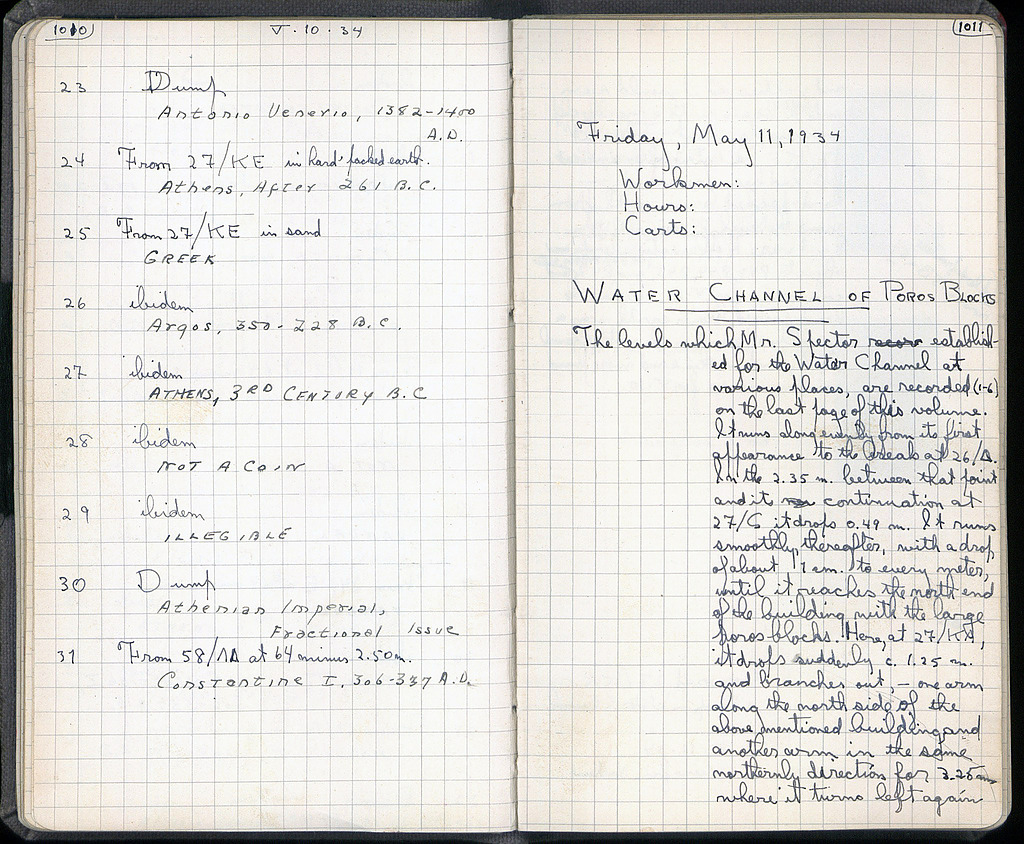 1010
V·10·34
23 Dump
Antonio Venerio, 1382-1400
A.D.
24 From 27/ΚΕ in hard packed earth.
Athens, After 261 B.C.
25 From 27/ΚΕ in sand
GREEK
26 ibidem
Argos, 350-228 B.C.
27 ibidem
ATHENS, 3RD CENTURY B.C
28 ibidem
NOT A COIN
29 ibidem
ILLEGIBLE
30 Dump
Athenian Imperial,
Fractional Issue
31 From 58/ΛΔ at 64 minus 2.50m.
Constantine I, 306-337 A.D.
1011
Friday, May 11, 1934
Workmen:
Hours:
Carts:
WATER CHANNEL OF POROS BLOCKS
The levels which Mr. Spector establish-
ed for the Water Channel at
various places, are recorded (1-6)
on the last page of this volume.
It runs along evenly from its first
appearance to the break at 26/Δ.
In the 2.35 m. between that point
and its continuation at
27/ it drops 0.49 m. It runs
smoothly, thereafter, with a drop
of about 1 cm. to every meter,
until it reaches the north end
of the building with the large
poros blocks. Here, at 27/ΚΑ,
it drops suddenly c. 1.25 m.
and branches out, – one arm
along the north side of the
above mentioned building and
another arm in the same
northernly direction for 3.25m
where it turns left again